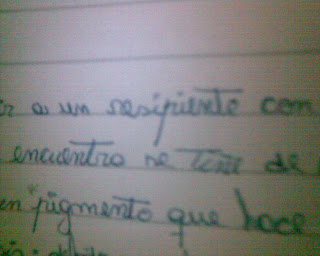 a un resipiente con
encuentro se tiñe de
en pigmento que hace